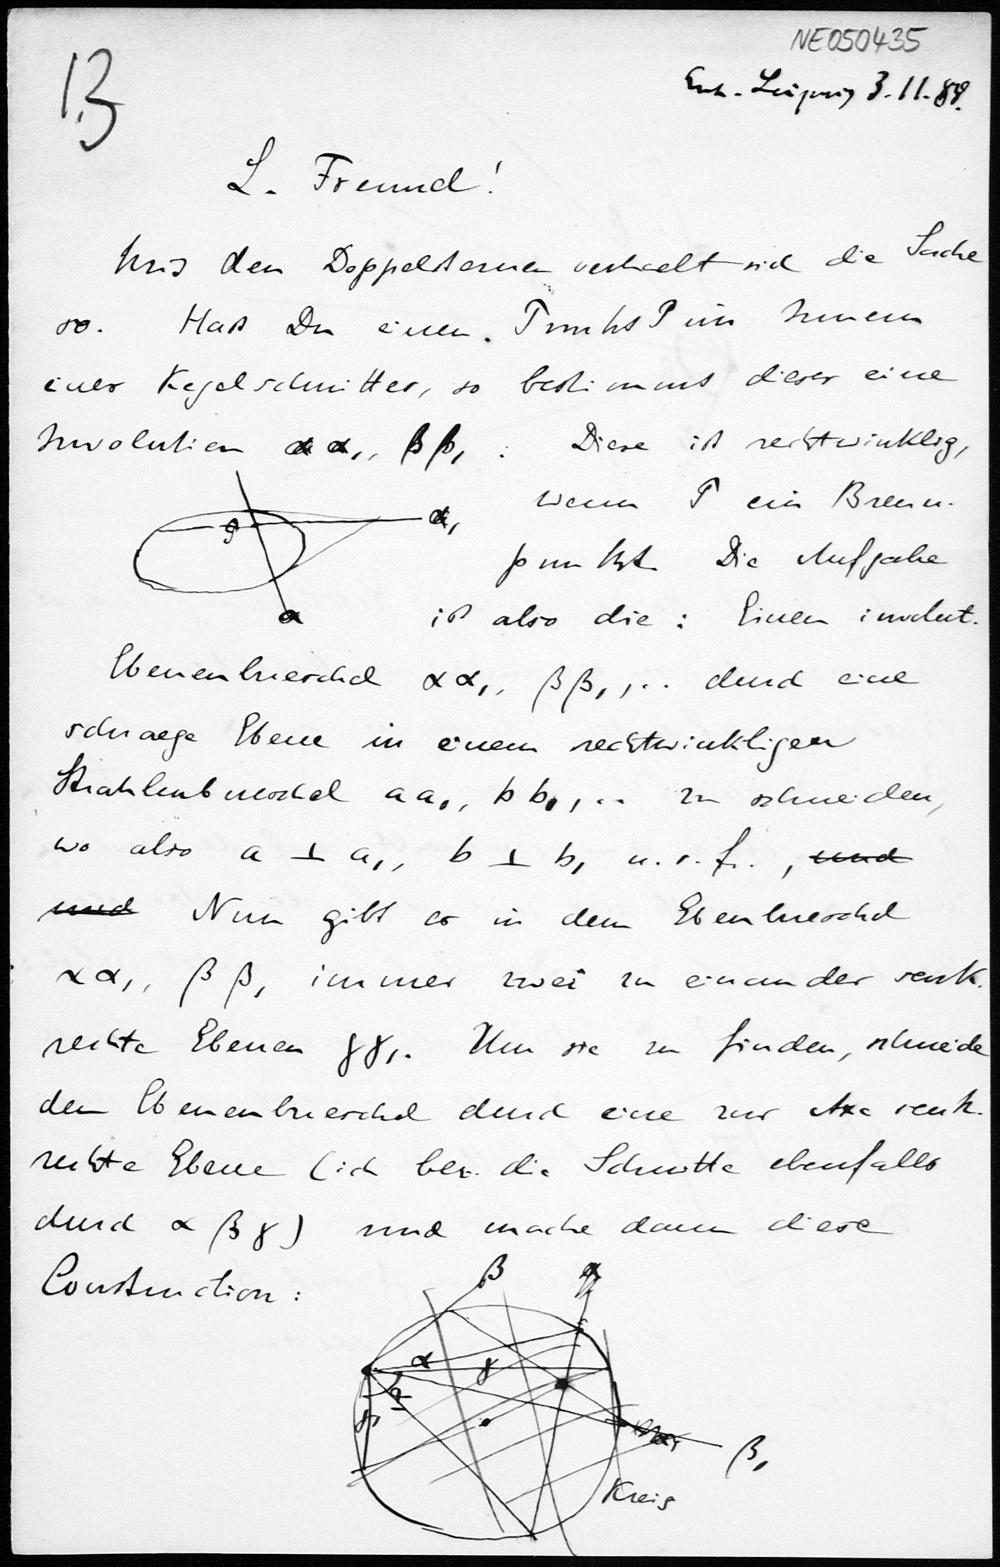 NE050435
13
Leipzig 3.11.84.
L. Freund!
Mit den Doppelsternen verhaelt sich die Sache
so. Hast Du einen Punkt P im Innern
eines Kegelschnittes, so bestimmt dieser eine
Involution α α₁, β β₁ : Diese ist rechtwinklig,
wenn P ein Brenn-
punkt. Die Aufgabe
ist also die: Einen involut.
P
α₁
α
Ebenenbueschel α α₁, β β₁, .. durch eine
schraege Ebene in einem rechtwinkligen
Strahlenbueschel a a₁, b b₁, .. zu schneiden,
wo also a ⊥ a₁, b ⊥ b₁ u.s.f., und
und Nun gibt es in dem Ebenbueschel
α α₁, β β₁ immer zwei zu einander senk-
rechte Ebenen γ γ₁. Um sie zu finden, schneide
den Ebenenbueschel durch eine zur Axe senk-
rechte Ebene (ich bez. die Schnitte ebenfalls
durch α β γ) und mache dann diese
Construction:
β
α
α
γ
β₁
Kreis